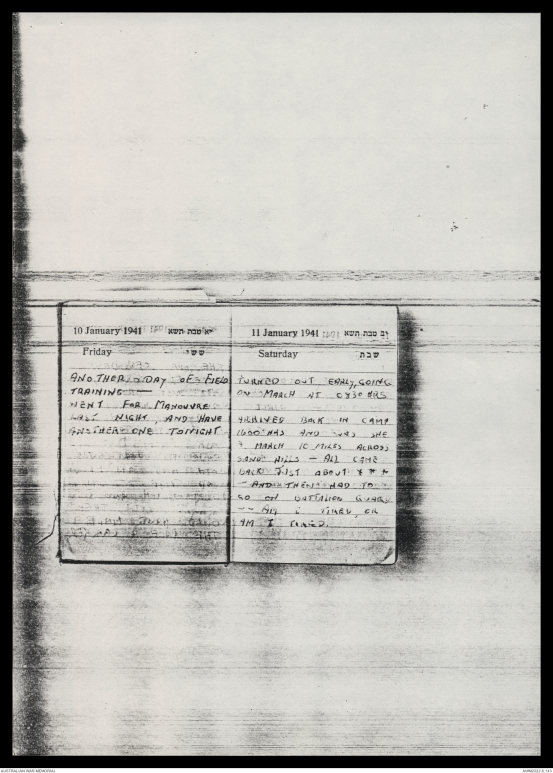 10 January 1941 יא טבת תשא
Friday ששי
ANOTHER DAY OF FIELD
TRAINING —
WENT FOR MANOUVRE
LAST NIGHT AND HAVE
ANOTHER ONE TONIGHT
11 January 1941 יב טבת תשא
Saturday שבת
TURNED OUT EARLY, GOING
ON MARCH AT 0830 HRS
ARRIVED BACK IN CAMP
1600 HRS AND WAS SHE
MARCH 10 MILES ACROSS
SAND HILLS — ALL CAME
BACK JUST ABOUT * * *
– AND THEN HAD TO
GO ON BATTALION GUARD
-- AM I TIRED, OR
AM I TIRED.
AUSTRALIAN WAR MEMORIAL